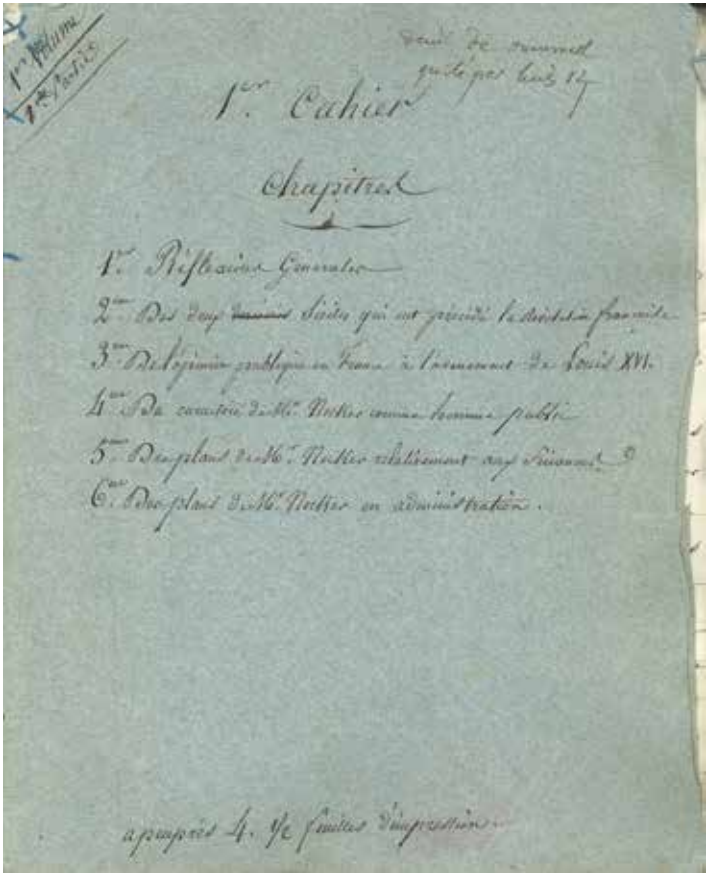 1er Volume
1ère Partie
deuil de
quité par Louis 14
1er Cahier
Chapitres
1er Réflexions Générales
2eme Des deux derniers Siècles qui ont précédé la révolution française
3eme De l'opinion publique en France à l'avenement de Louis XVI.
4eme Du caractère de Mr. Necker comme homme public
5eme Des plans de Mr. Necker relativement aux finances
6eme Des plans de Mr. Necker en administration.
apeuprès 4. 1/2 feuilles d'impression.